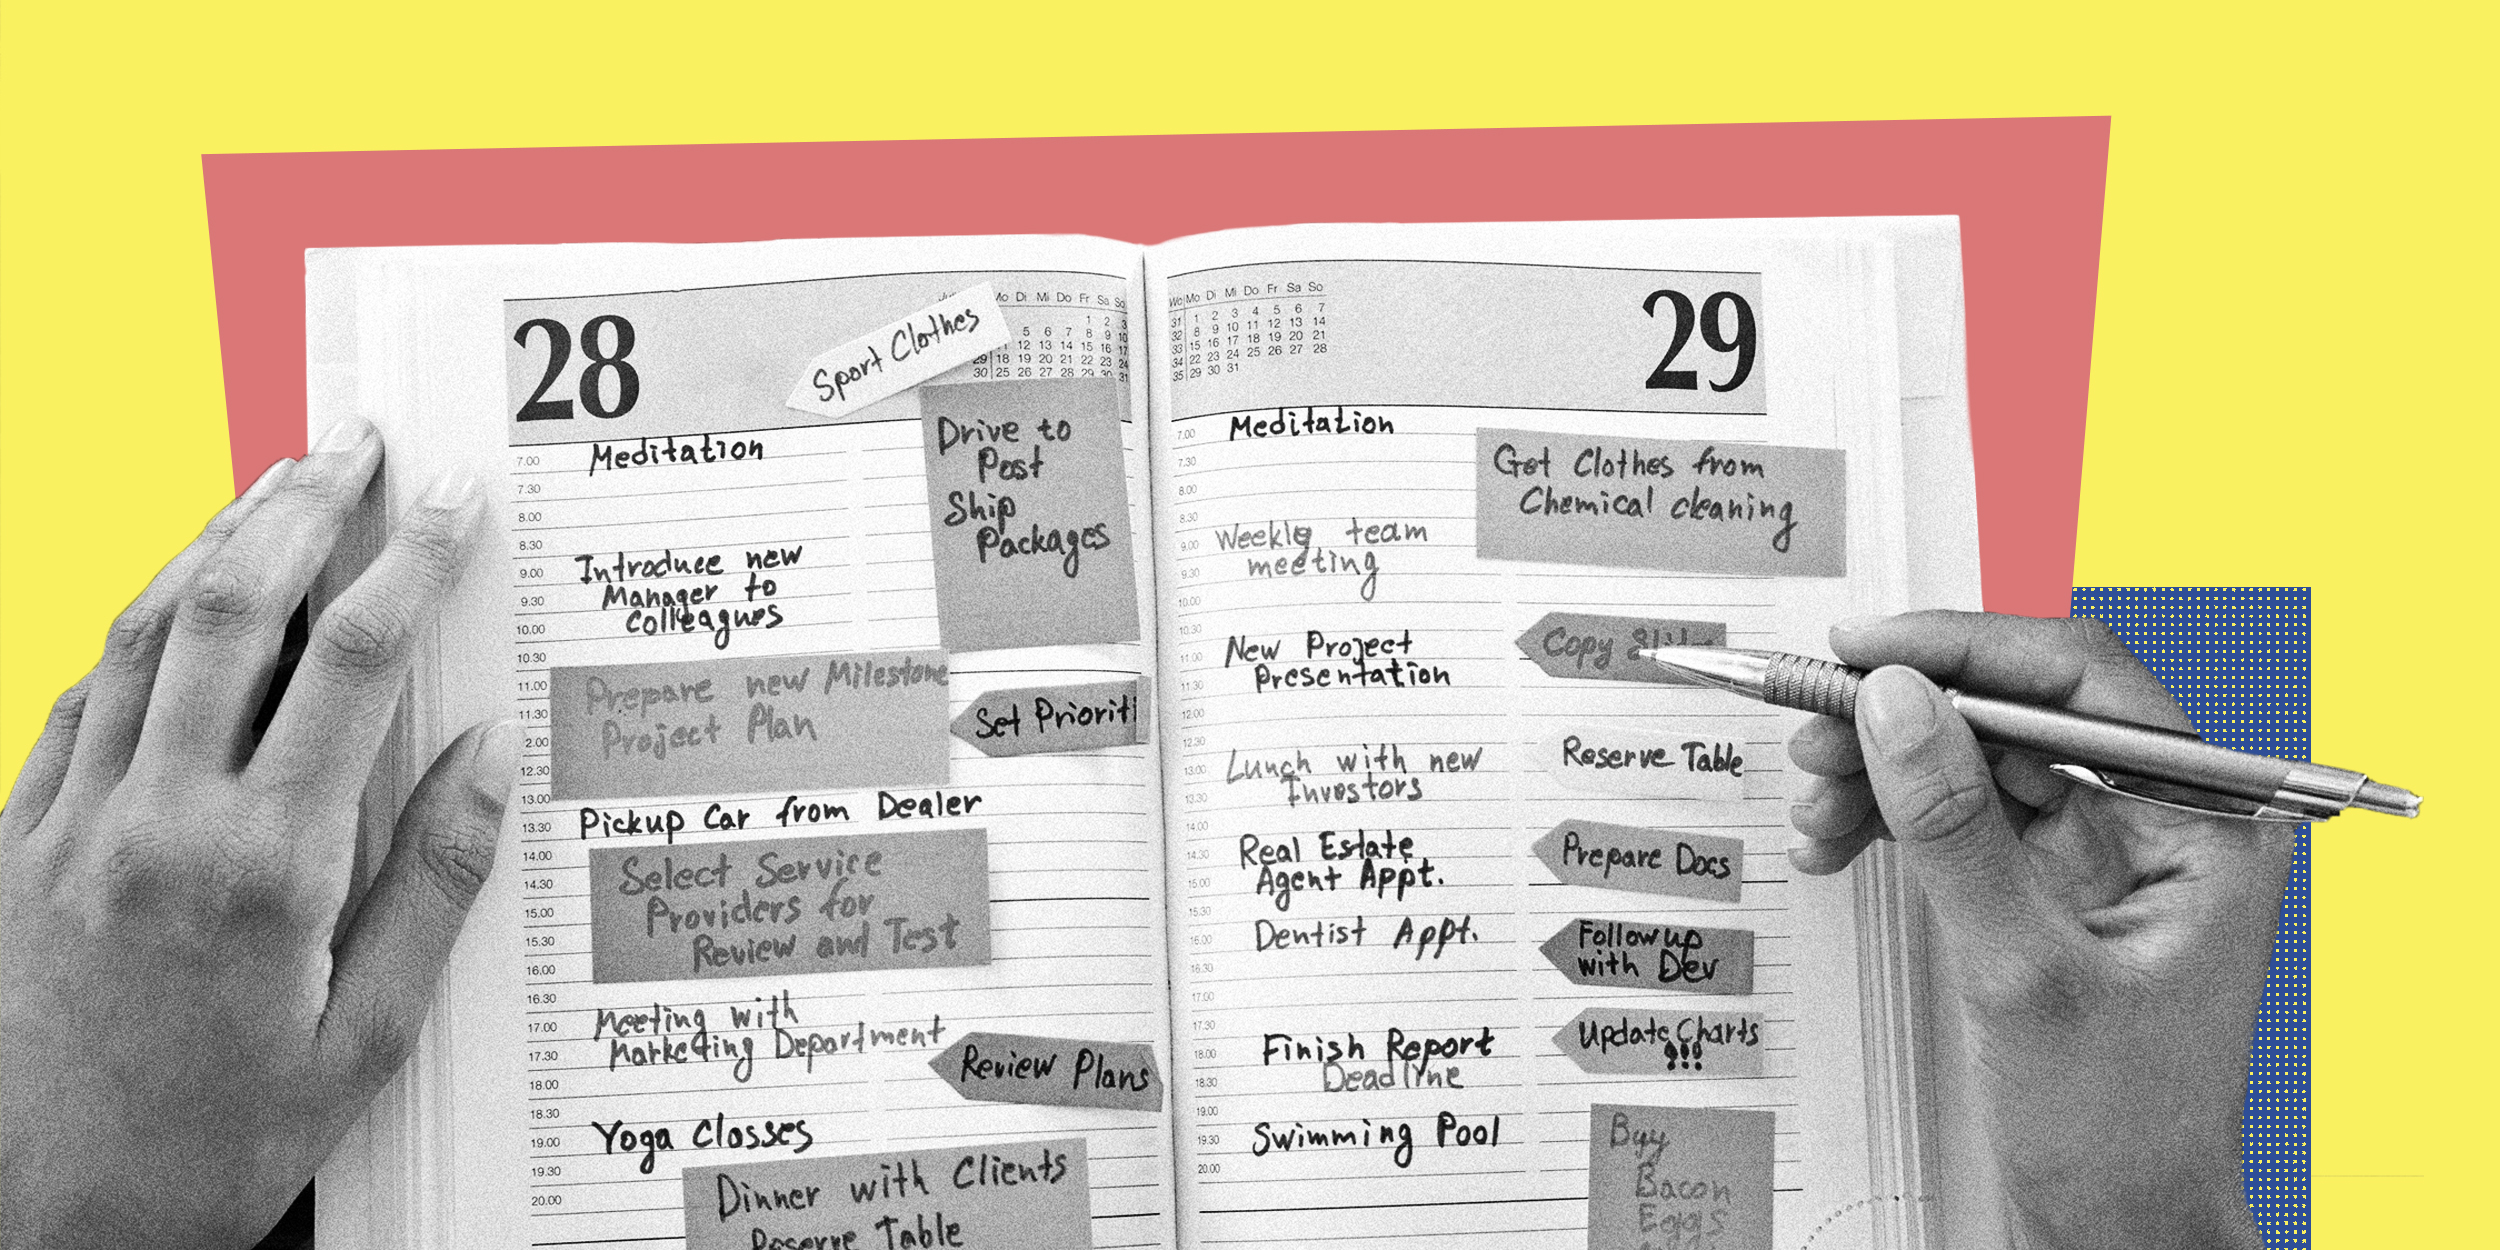 28
Sport Clothes
Mo Di Mi Do Fr Sa So
1 2 3
5 6 7 8 9 10
12 13 14 15 16 17
29 18 19 20 21 22 23 24
30 25 26 27 28 29 30 31
Drive to
Post
Ship
Packages
7.00 Meditation
7.30
8.00
8.30
Introduce new
9.00
Manager to
9.30
Colleagues
10.00
10.30
Prepare new Milestone
11.00
Set Prioriti
11.30
Project Plan
2.00
12.30
13.00
Pickup Car from Dealer
13.30
14.00
Select Service
14.30
Providers for
15.00
Review and Test
15.30
16.00
16.30
Meeting with
17.00
Marketing Department
17.30
Review Plans
18.00
18.30
Yoga Classes
19.00
19.30
Dinner with Clients
20.00
Reserve Table
29
Wo Mo Di Mi Do Fr Sa So
31 1 2 3 4 5 6 7
32 8 9 10 11 12 13 14
33 15 16 17 18 19 20 21
34 22 23 24 25 26 27 28
35 29 30 31
7.00 Meditation
Get Clothes from
7.30
Chemical cleaning
8.00
8.30
Weekly team
9.00
meeting
9.30
10.00
10.30
New Project
Copy
11.00
Presentation
11.30
12.00
12.30
Lunch with new
Reserve Table
13.00
Investors
13.30
14.00
Real Estate
Prepare Docs
14.30
Agent Appt.
15.00
15.30
Dentist Appt.
16.00
Follow up
with Dev
16.30
17.00
17.30
Finish Report
Update Charts
!!!
18.00
Deadline
18.30
19.00
Swimming Pool
19.30
20.00
Buy
Bacon
Eggs